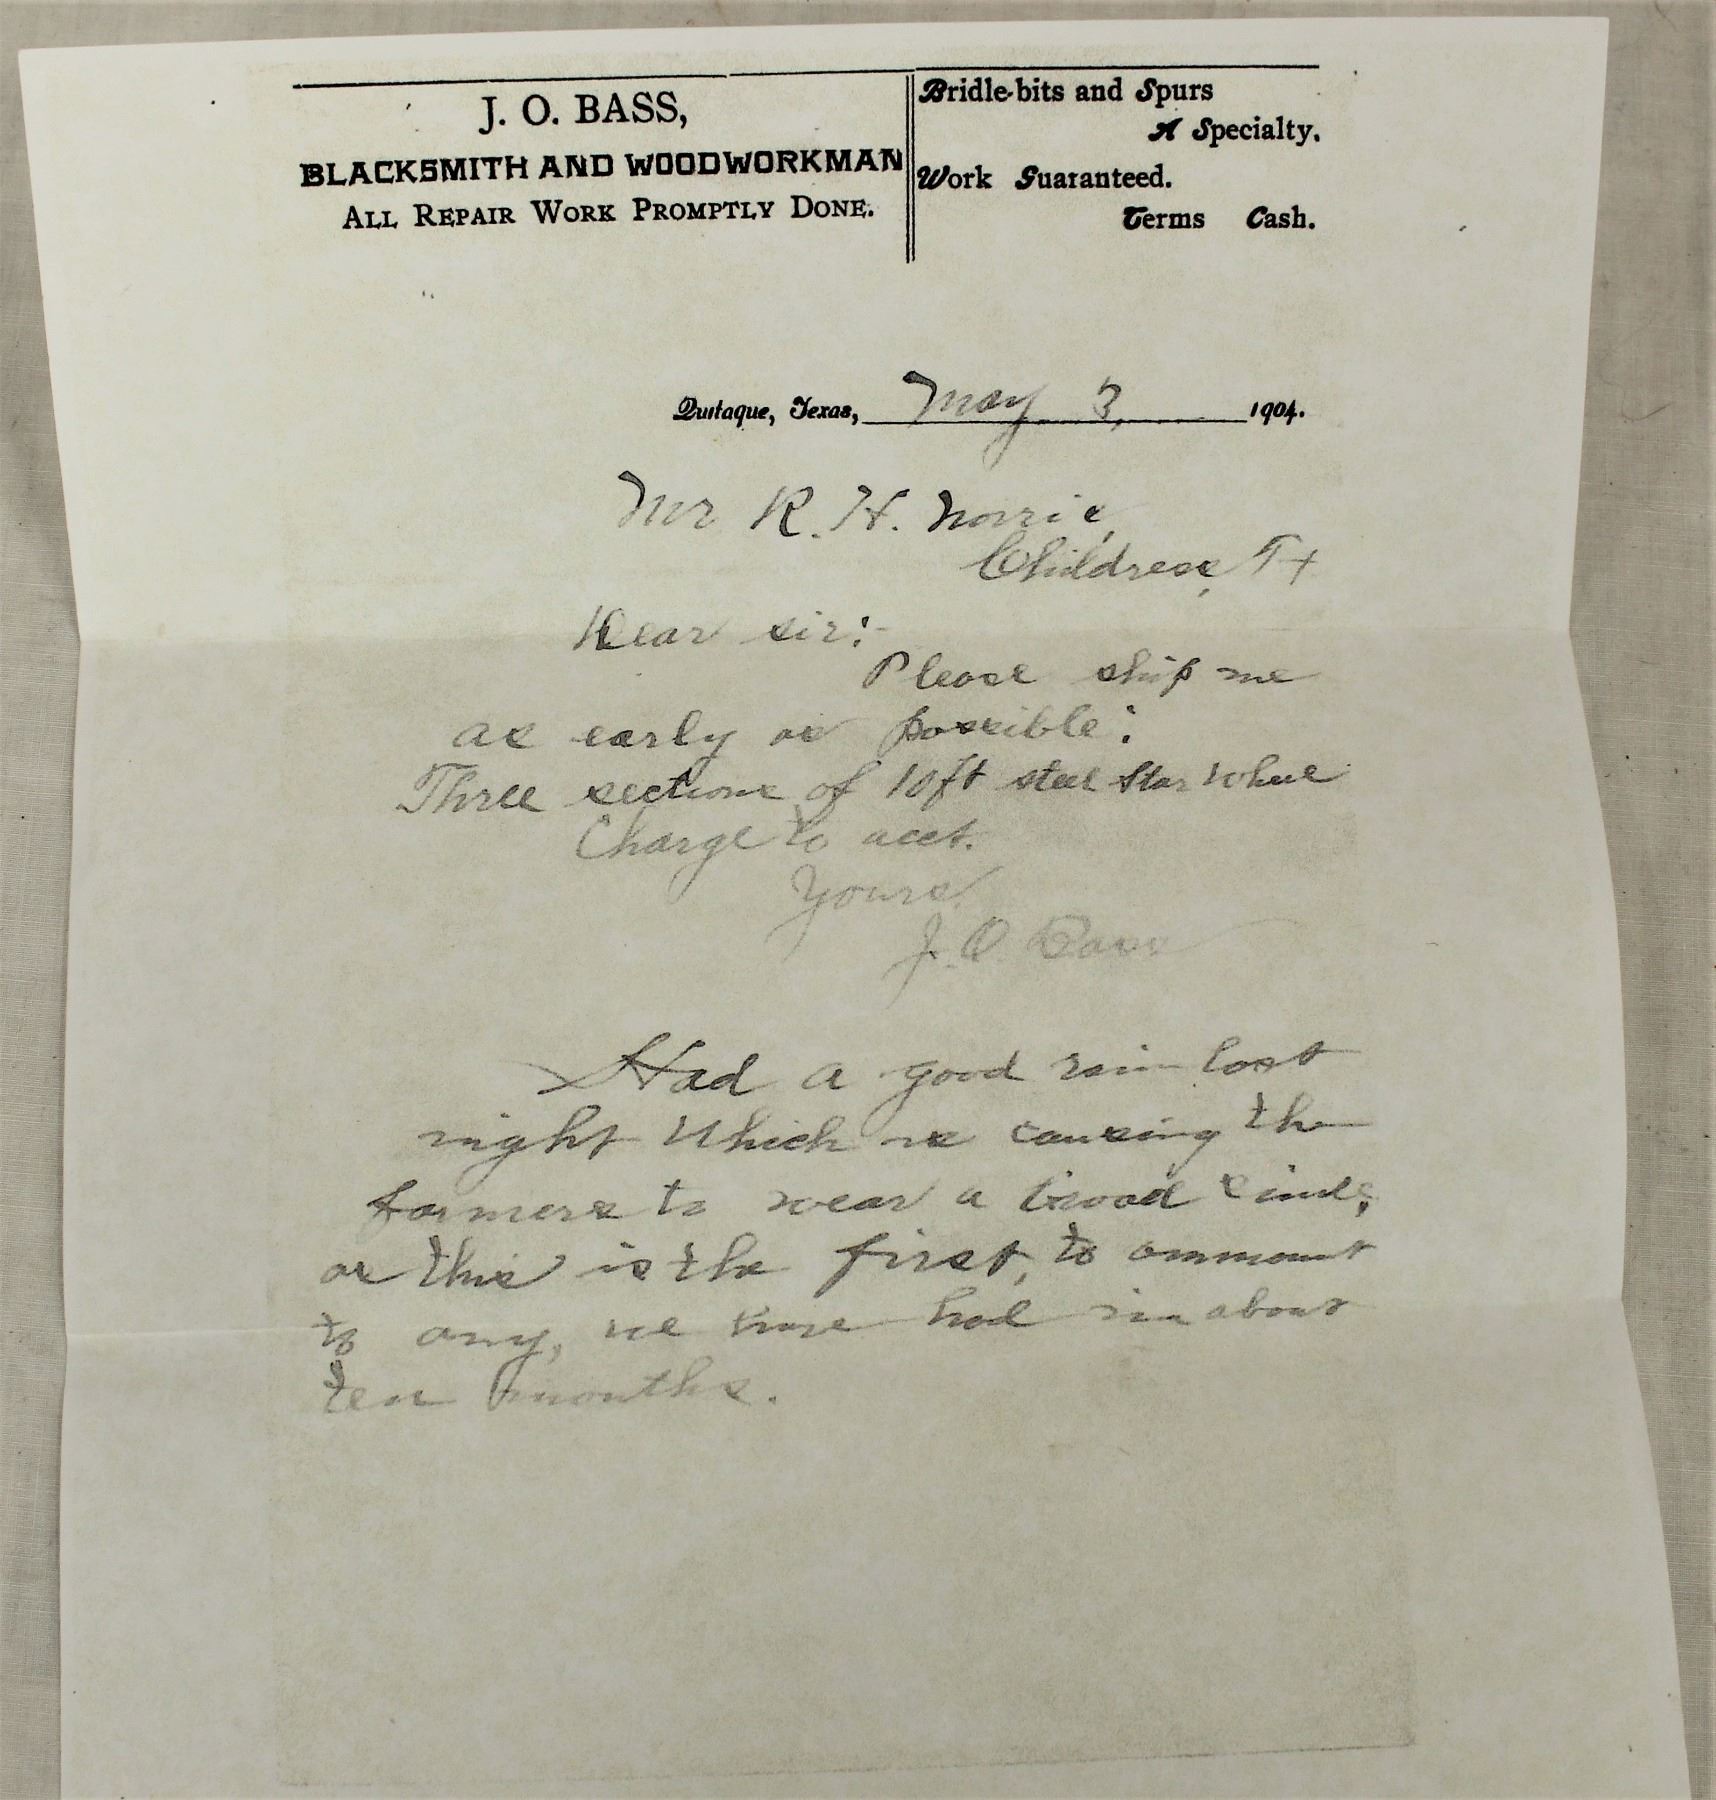 J. O. BASS,
BLACKSMITH AND WOODWORKMAN
ALL REPAIR WORK PROMPTLY DONE.
Bridle-bits and Spurs
A Specialty.
Work Guaranteed.
Terms Cash.
Quitaque, Texas, May 3, 1904.
Mr R. H. Norris,
Childress, Tx
Dear sir:-
Please ship me
as early as possible:
Three sections of 10ft steel Star Wheel
Charge to acct.
Yours,
J. O. Bass
Had a good rain last
night Which is causing the
farmers to wear a broad smile,
as this is the first, to ammount
to any, we have had in about
ten months.